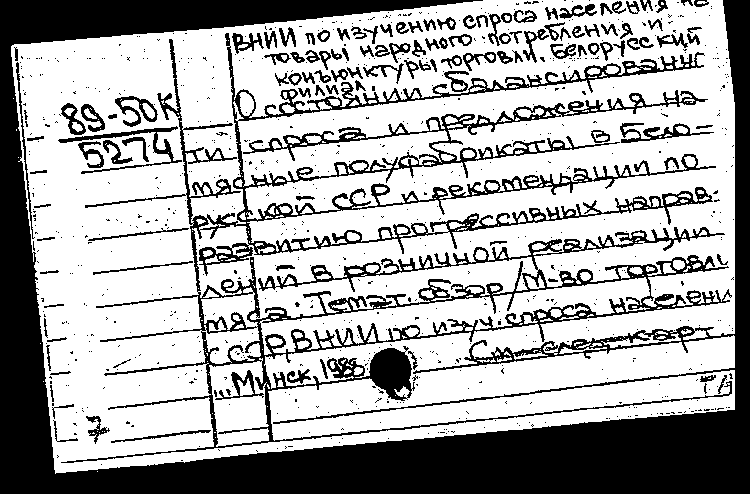 ВНИИ по изучению спроса населения на
товары народного потребления и
конъюнктуры торговли. Белорусский
филиал.
89-50К
5274
О состоянии сбалансированно
ти спроса и предложения на
мясные полуфабрикаты в Бело=
русской ССР и рекомендации по
развитию прогрессивных направ-
лений в розничной реализации
мяса: Темат. обзор / М-во торговли
СССР, ВНИИ по изуч. спроса населени
...Минск, 1988
См. след. карт.
7